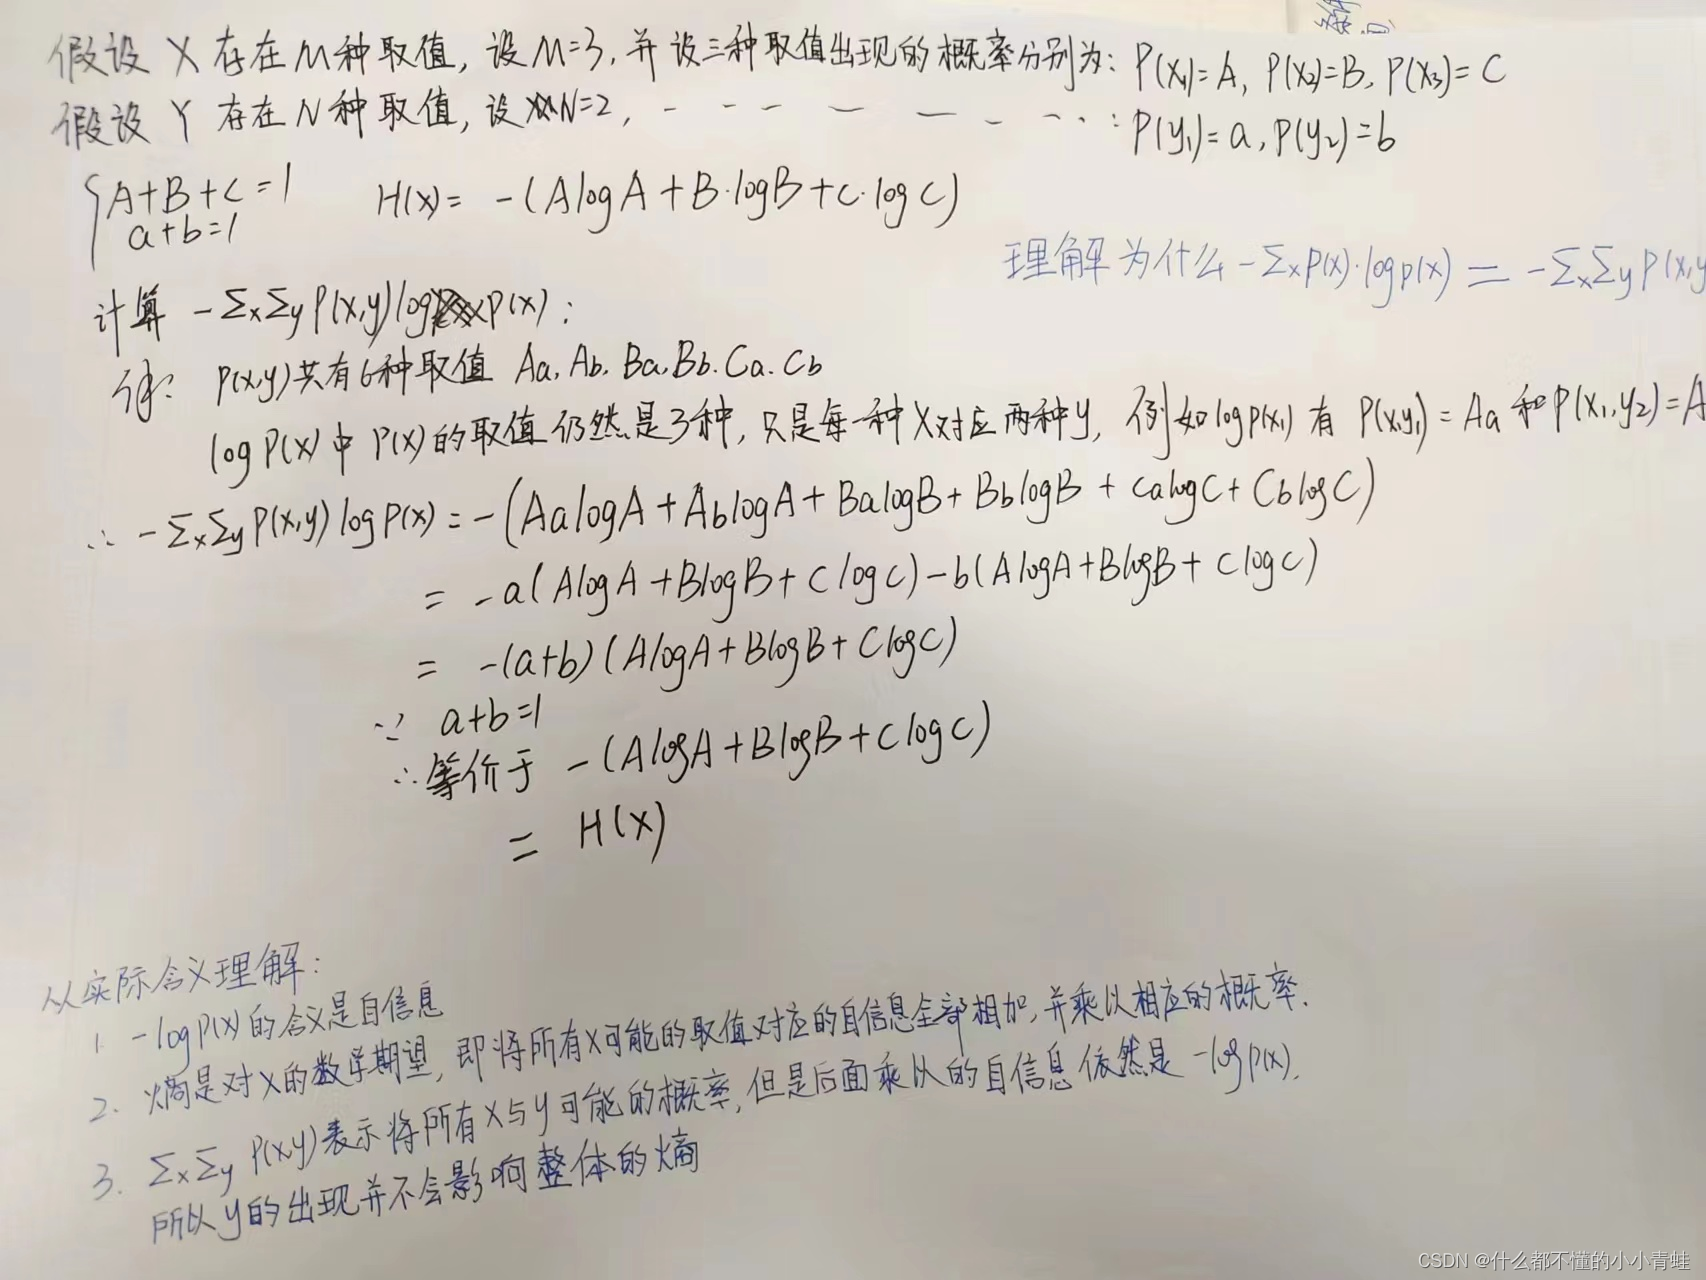 假设 X 存在 M 种取值, 设 M=3, 并设三种取值出现的概率分别为: P(x₁)=A, P(x₂)=B, P(x₃)=C
假设 Y 存在 N 种取值, 设 N=2, - - - - - - - · · : P(y₁)=a, P(y₂)=b
{A+B+C=1
a+b=1
H(x)= -(AlogA+B·logB+C·logC)
理解为什么 -Σₓp(x)·logp(x) = -ΣₓΣy P(x,y
计算 -ΣₓΣy P(x,y)log P(x):
P(x,y)共有6种取值 Aa, Ab, Ba, Bb. Ca. Cb
log P(x) 中 P(x) 的取值仍然是3种, 只是每一种X对应两种y, 例如 logp(x₁) 有 P(x,y₁)=Aa 和 P(x₁,y₂)=A
∴ -ΣₓΣy P(x,y) log P(x) = -(AalogA+AblogA+BalogB+BblogB+CalogC+CblogC)
= -a(AlogA+BlogB+ClogC)-b(AlogA+BlogB+ClogC)
= -(a+b)(AlogA+BlogB+ClogC)
∵ a+b=1
∴ 等价于 -(AlogA+BlogB+ClogC)
= H(X)
从实际含义理解:
1. -logP(x) 的含义是自信息
2. 熵是对X的数学期望, 即将所有X可能的取值对应的自信息全部相加, 并乘以相应的概率.
3. ΣₓΣy P(x,y)表示将所有X与y可能的概率, 但是后面乘以的自信息依然是 -logp(x).
所以y的出现并不会影响整体的熵
CSDN @什么都不懂的小小青蛙